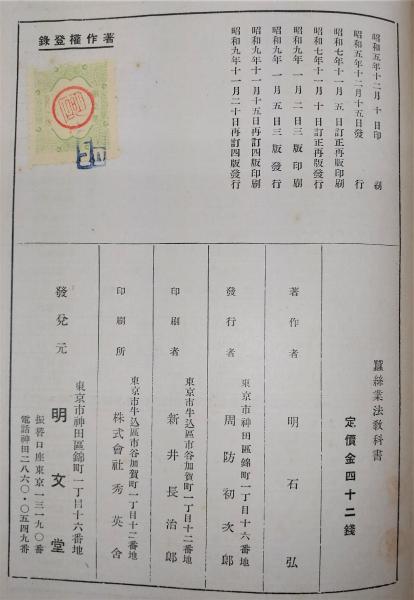 昭和五年十二月十日印刷
昭和五年十二月十五日發行
昭和七年十一月五日訂正再版印刷
昭和七年十一月十日訂正再版發行
昭和九年一月二日三版印刷
昭和九年一月五日三版發行
昭和九年十一月十五日再訂四版印刷
昭和九年十一月二十日再訂四版發行
著作權登錄
蠶絲業法教科書
定價金四十二錢
著作者 明石弘
東京市神田區錦町一丁目十六番地
發行者 周防初次郎
東京市牛込區市谷加賀町一丁目十二番地
印刷者 新井長治郎
東京市牛込區市谷加賀町一丁目十二番地
印刷所 株式會社秀英舍
東京市神田區錦町一丁目十六番地
發兌元 明文堂
振替口座東京一三一九〇番
電話神田二八六〇・〇五四九番